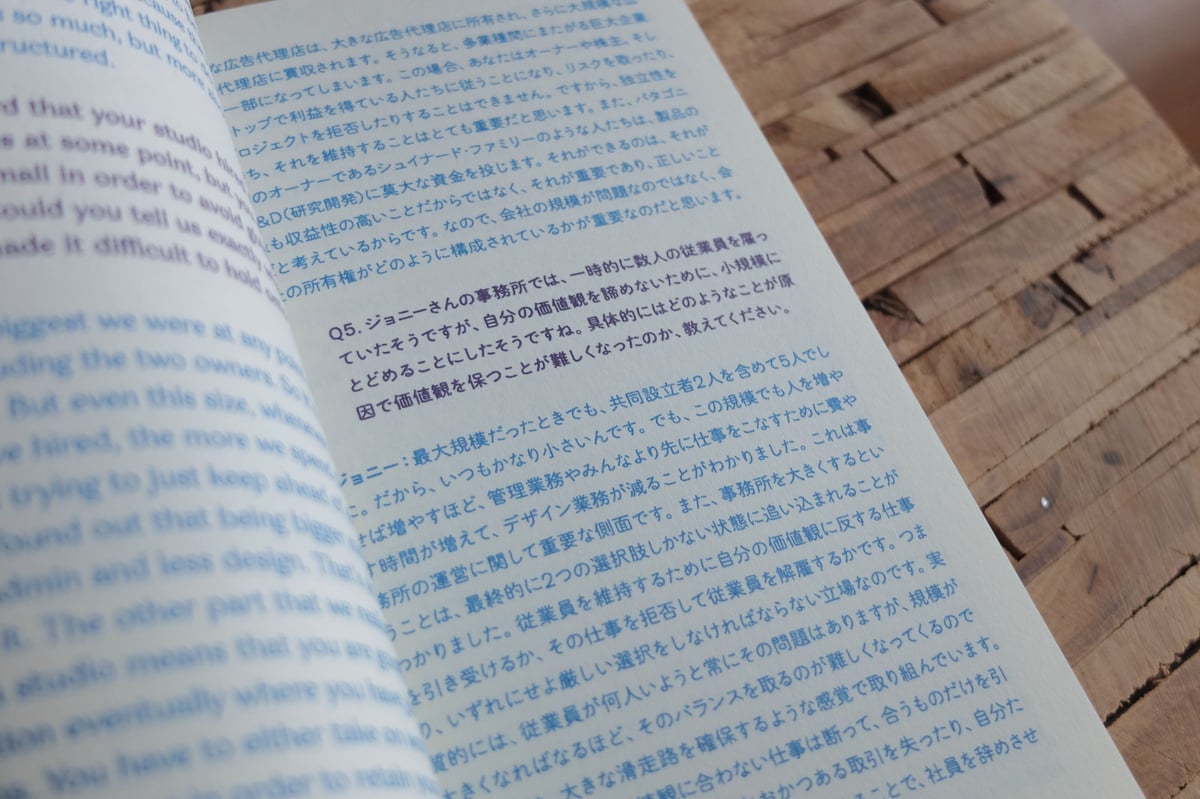 so much, but more
ructured.
rd that your studio
e at some point, but
mall in order to avoid
ould you tell us exactly
made it difficult to hold
biggest we were at any
uding the two owners. So
But even this size, whenever
ve hired, the more we
trying to just keep ahead
found out that being bigger
admin and less design. That's
it. The other part that we
a studio means that you are
tion eventually where you have
s. You have to either take on
in order to retain
な広告代理店は、大きな広告代理店に所有され、さらに大規模な
代理店に買収されます。そうなると、多業種間にまたがる巨大企業
一部になってしまいます。この場合、あなたはオーナーや株主、そし
トップで利益を得ている人たちに従うことになり、リスクを取ったり、
ロジェクトを拒否したりすることはできません。ですから、独立性を
ち、それを維持することはとても重要だと思います。また、パタゴニ
のオーナーであるシュイナード・ファミリーのような人たちは、製品の
&D(研究開発)に莫大な資金を投じます。それができるのは、それが
も収益性の高いことだからではなく、それが重要であり、正しいこと
だと考えているからです。なので、会社の規模が問題なのではなく、会
の所有権がどのように構成されているかが重要なのだと思います。
Q5. ジョニーさんの事務所では、一時的に数人の従業員を雇っ
ていたそうですが、自分の価値観を諦めないために、小規模に
とどめることにしたそうですね。具体的にはどのようなことが原
因で価値観を保つことが難しくなったのか、教えてください。
ジョニー：最大規模だったときでも、共同設立者2人を含めて5人でし
た。だから、いつもかなり小さいんです。でも、この規模でも人を増や
せば増やすほど、管理業務やみんなより先に仕事をこなすために費や
す時間が増えて、デザイン業務が減ることがわかりました。これは事
務所の運営に関して重要な側面です。また、事務所を大きくするとい
うことは、最終的に2つの選択肢しかない状態に追い込まれることが
つかりました。従業員を維持するために自分の価値観に反する仕事
を引き受けるか、その仕事を拒否して従業員を解雇するかです。つま
り、いずれにせよ厳しい選択をしなければならない立場なのです。実
質的には、従業員が何人いようと常にその問題はありますが、規模が
大きくなればなるほど、そのバランスを取るのが難しくなってくるので
、大きな滑走路を確保するような感覚で取り組んでいます。
値観に合わない仕事は断って、合うものだけを引
おかつある取引を失ったり、自分た
ることで、社員を辞めさせ